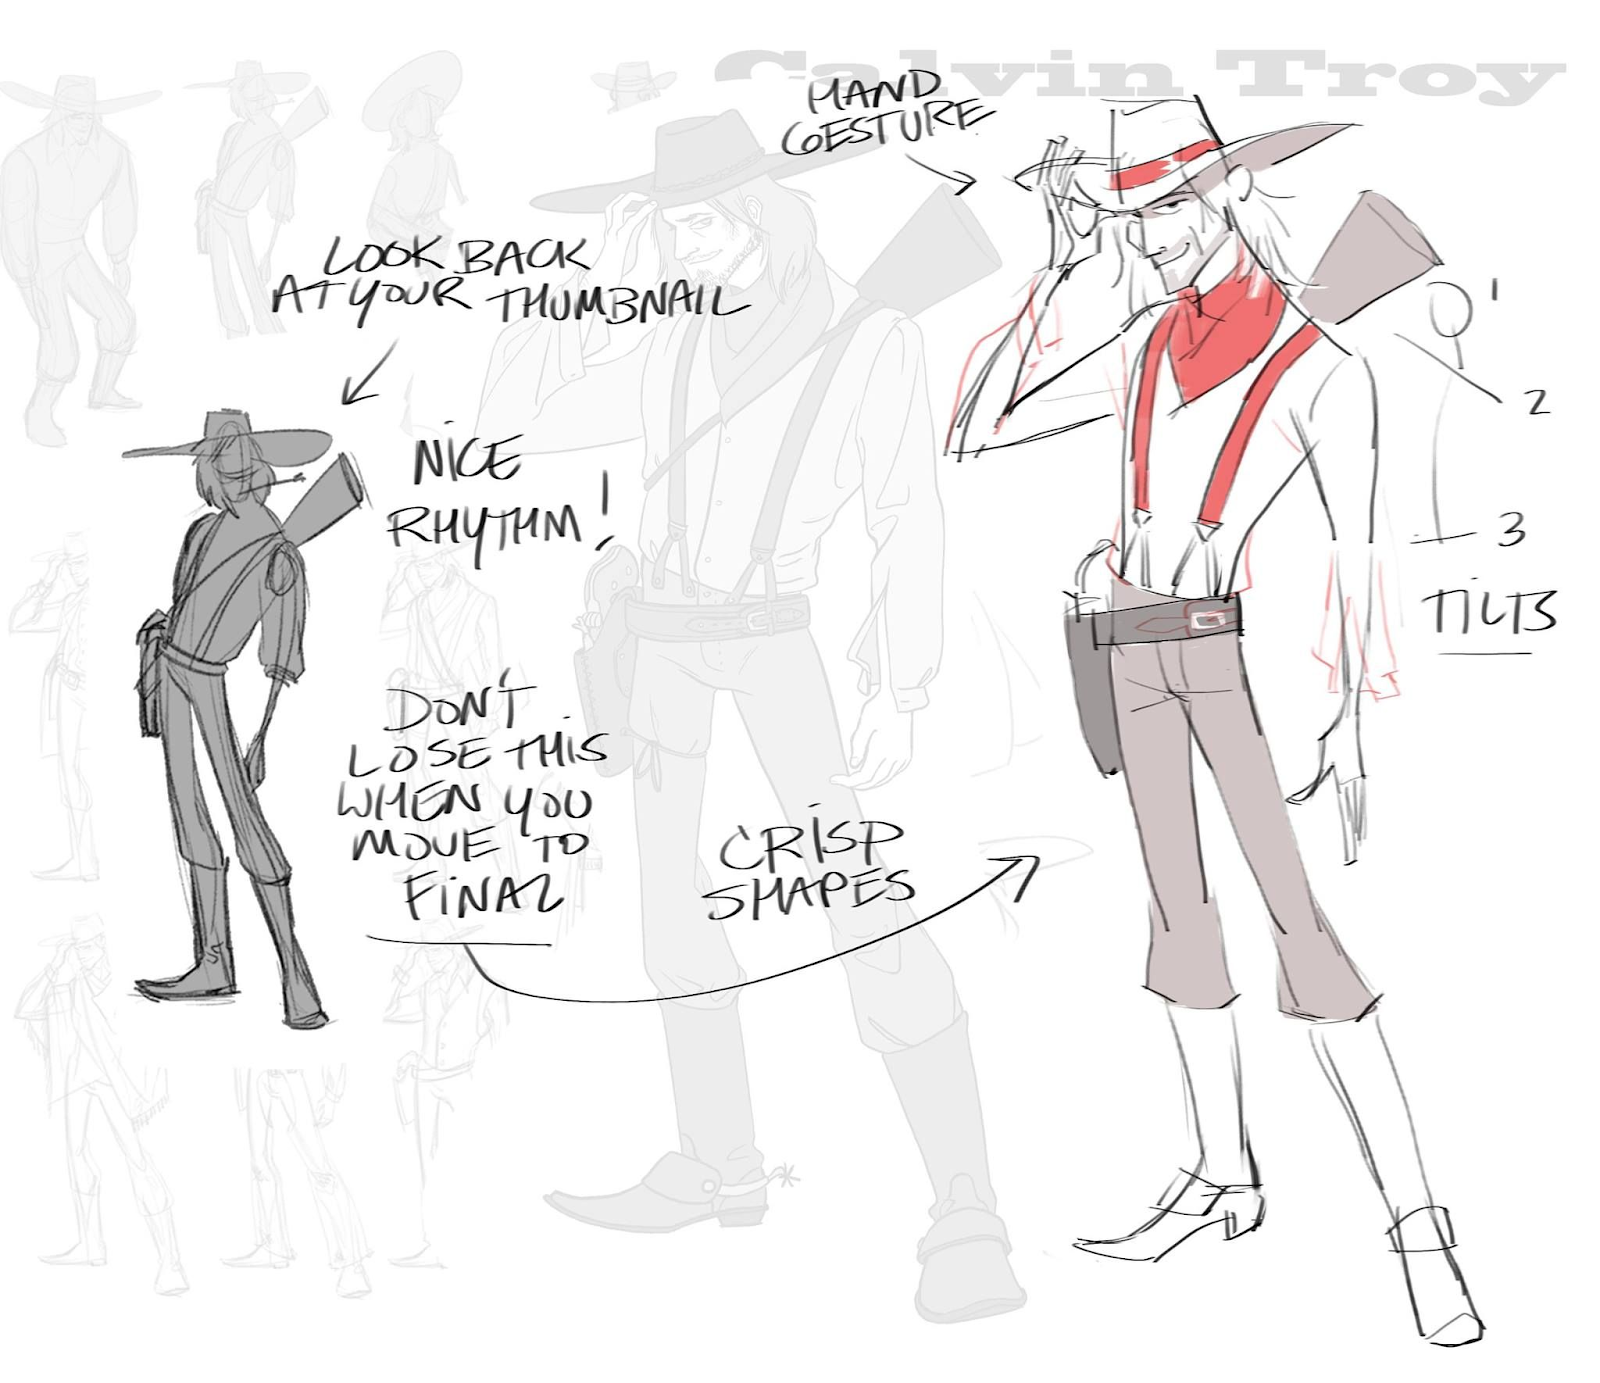 Calvin Troy
HAND
GESTURE
LOOK BACK
AT YOUR THUMBNAIL
NICE
RHYTHM!
DON'T
LOSE THIS
WHEN YOU
MOVE TO
FINAL
CRISP
SHAPES
1
2
3
TILTS